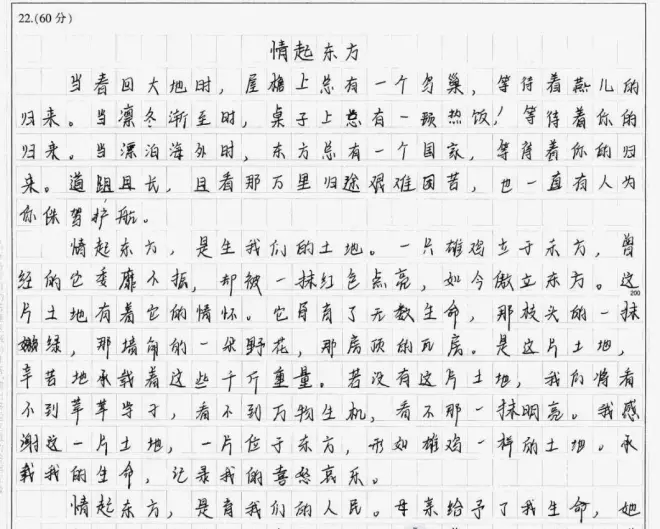 22.(60 分)
情起东方
当春回大地时，屋檐上总有一个鸟巢，等待着燕儿的
归来。当凛冬渐至时，桌子上总有一顿热饭，等待着你的
归来。当漂泊海外时，东方总有一个国家，等待着你的归
来。道阻且长，且看那万里归途艰难困苦，也一直有人为
你保驾护航。
情起东方，是生我们的土地。一只雄鸡立于东方，曾
经的它委靡不振，却被一抹红色点亮，如今傲立东方。这
200
片土地有着它的情怀。它孕育了无数生命，那枝头的一抹
嫩绿，那墙角的一朵野花，那房顶的瓦房。是这片土地，
辛苦地承载着这些千斤重量。若没有这片土地，我们将看
不到莘莘学子，看不到万物生机，看不那一抹明亮。我感
谢这一片土地，一片位于东方，形如雄鸡一样的土地。承
载我的生命，记录我的喜怒哀乐。
情起东方，是育我们的人民。母亲给予了我生命，她